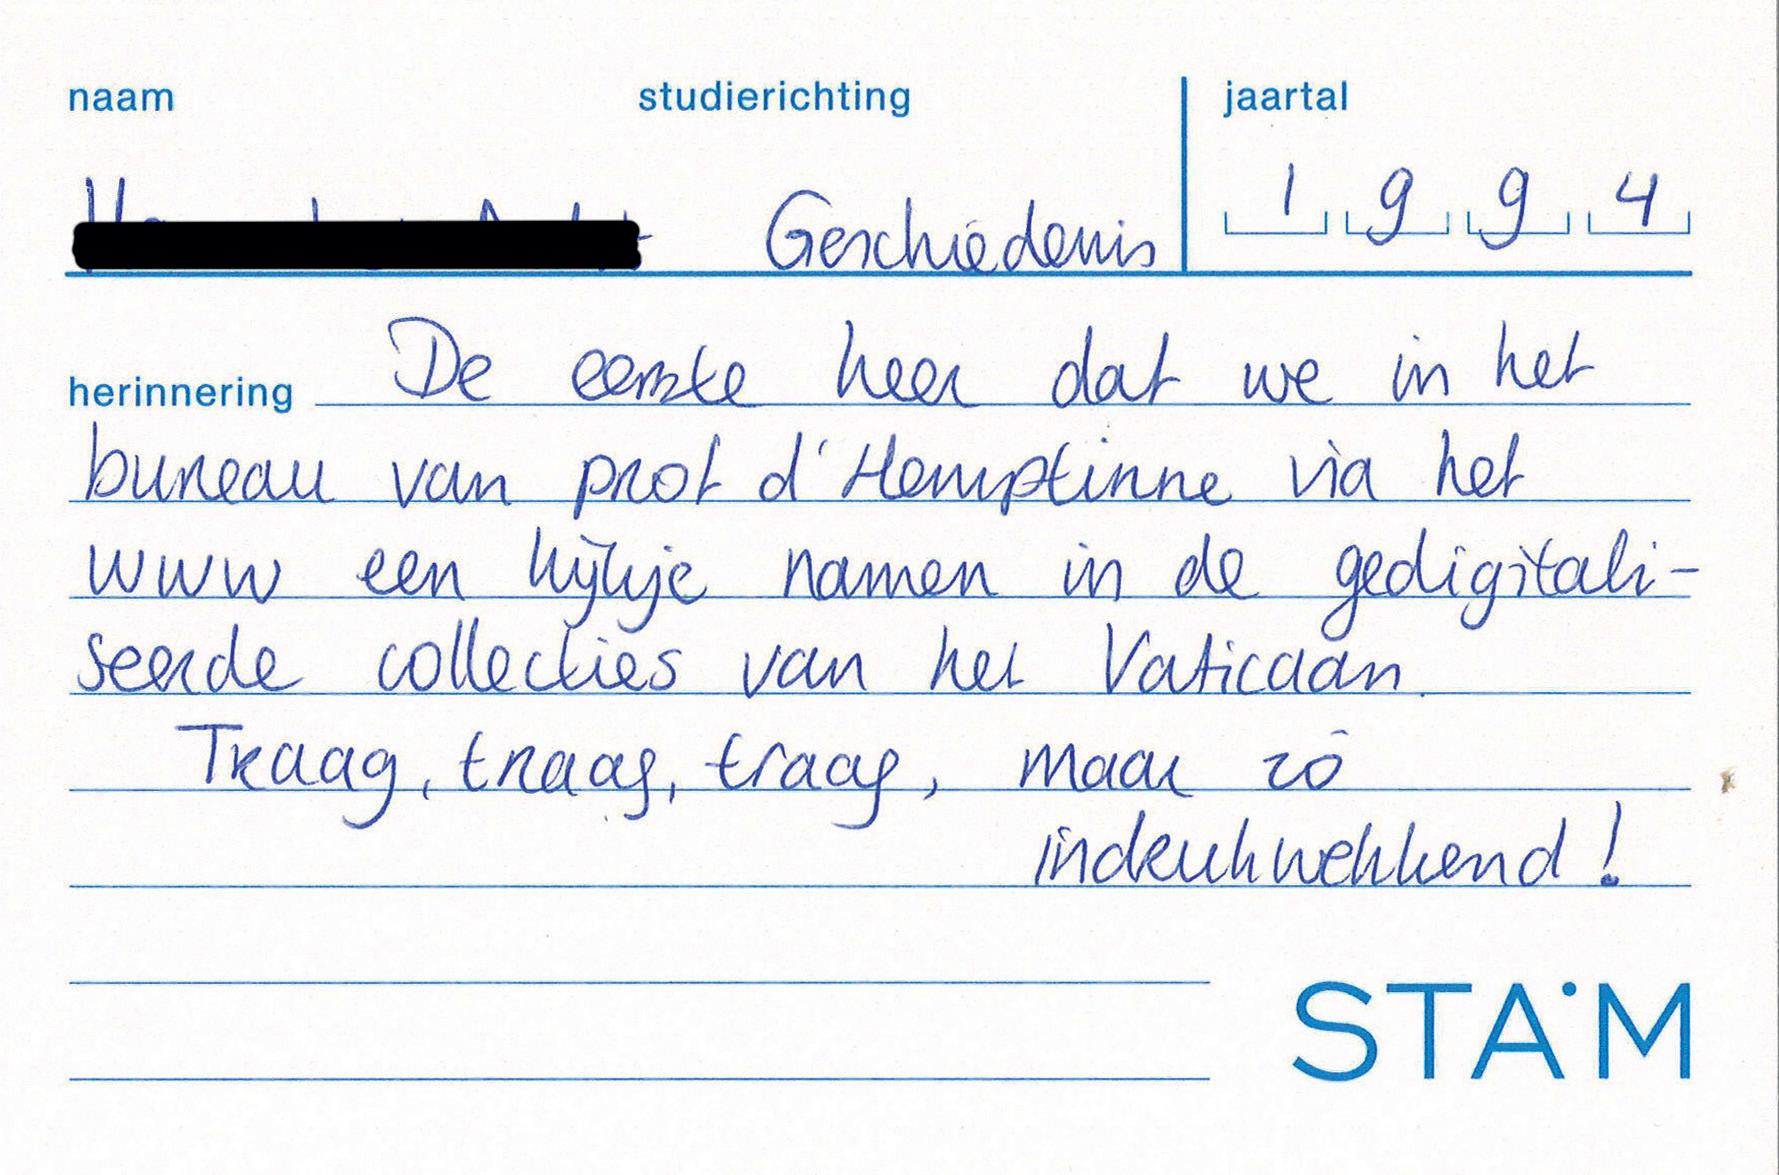 naam studierichting jaartal
Geschiedenis 1994
herinnering De eerste keer dat we in het
bureau van prof d'Hemptinne via het
www een kijkje namen in de gedigitali-
seerde collecties van het Vaticaan.
Traag, traag, traag, maar zó
indrukwekkend!
STAM